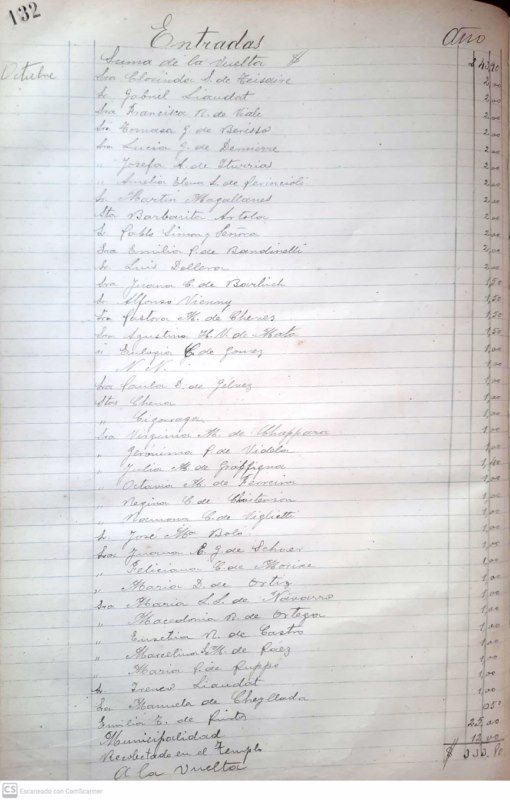 132
Entradas Año
Octubre Suma de la Vuelta $
Sra Clorinda S. de Teisaire 2,00
Sr Gabriel Liaudat 2,00
Sra Francisca N. de Viale 2,00
Sra Tomasa G. de Berisso 2,00
Sra Lucia G. de 2,00
" Josefa A. de Iturria 2,00
" Amelia Elena S. de 2,00
Sr Martin Magallanes 2,00
Sta Barbarita Artola 2,00
Sr Pablo Simon y Señora 2,00
Sra Emilia P. de Bandinelli 2,00
Sr Luis Dellera 2,00
Sra Juana C. de 1,50
Sr Alfonso Vienny 1,50
Sra Pastora M. de 1,50
Sra Agustina H. N. de Mata 1,50
" Eulogia C. de Gomez 1,00
N. N. 1,00
Sra Paula D. de Gelvez 1,00
Stas Chena 1,00
" 1,00
Sra Virginia M. de Chappara 1,00
" Jeronima P. de Videla 1,00
" Julia M. de Graffigna
" Octavia M. de Ferreira 1,00
" Regina C. de 1,00
" Romana C. de Viglietti 1,00
Sr José Ma 1,00
Sra Juana E. G. de 1,00
" Feliciana C. de 1,00
" Maria D. de Ortiz 1,00
Sra Maria S. S. de Navarro 1,00
" Macedonia R. de Ortega 1,00
" N. de Castro 1,00
" Marcelina M. de Paez 1,00
" Maria P. de Puppo 1,00
Sr Liaudat 1,00
Sra Manuela de 1,00
Emilia E. de Pinto 050
Municipalidad 25,00
Recolectado en el Templo
A la Vuelta $
CS Escaneado con CamScanner